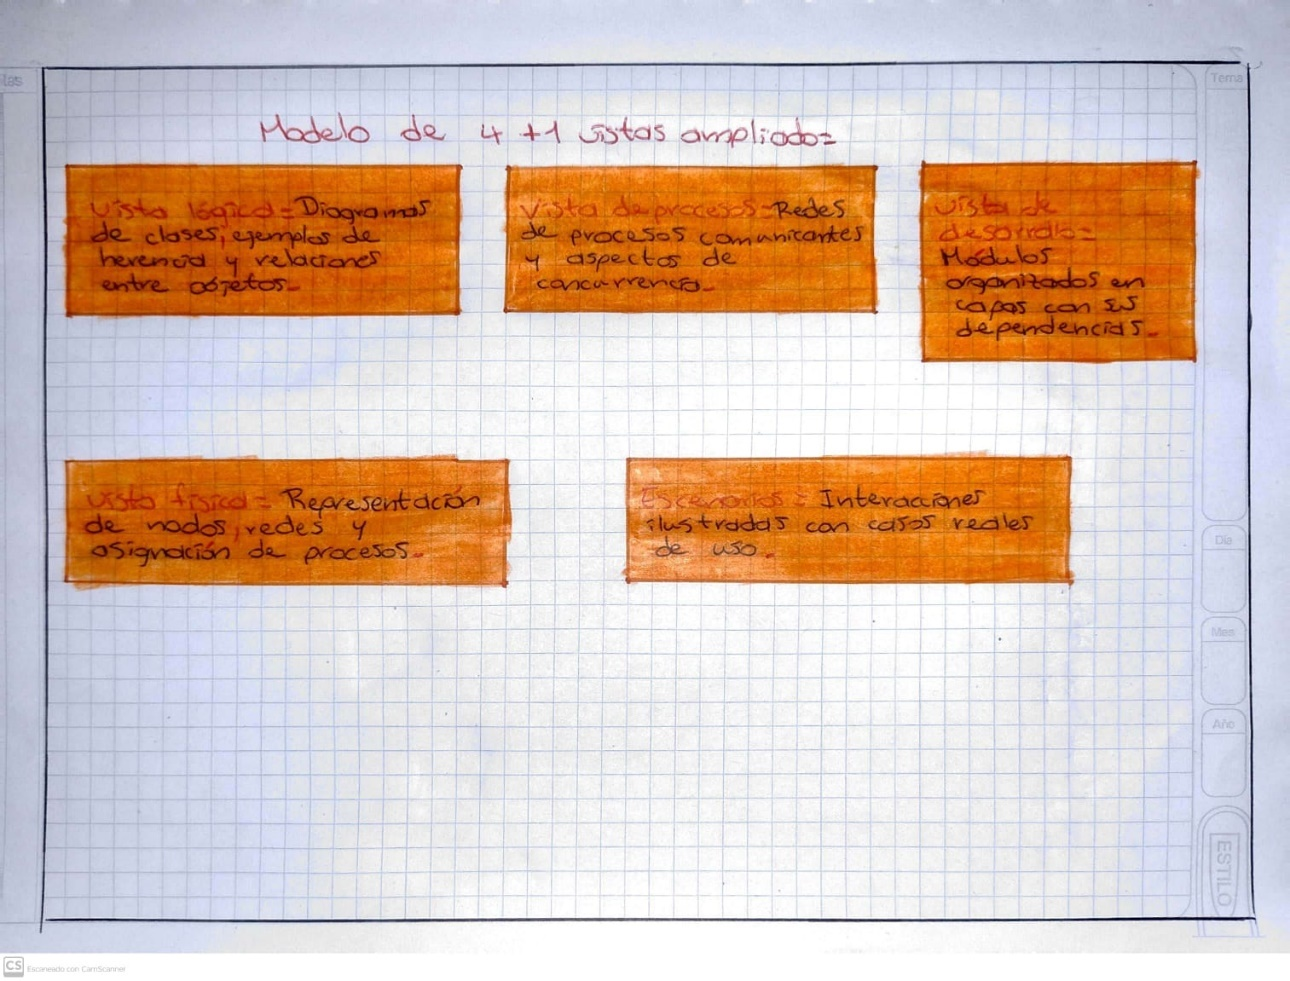 las
Tema
Modelo de 4 +1 vistas ampliado=
Vista lógica= Diagramas
de clases, ejemplos de
herencia y relaciones
entre objetos.
Vista de procesos= Redes
de procesos comunicantes
y aspectos de
concurrencia.
Vista de
desarrollo=
Módulos
organizados en
capas con sus
dependencias.
Vista física= Representación
de nodos, redes y
asignación de procesos.
Escenarios= Interaciones
ilustradas con casos reales
de uso.
Día
Mes
Año
ESTILO
CS Escaneado con CamScanner